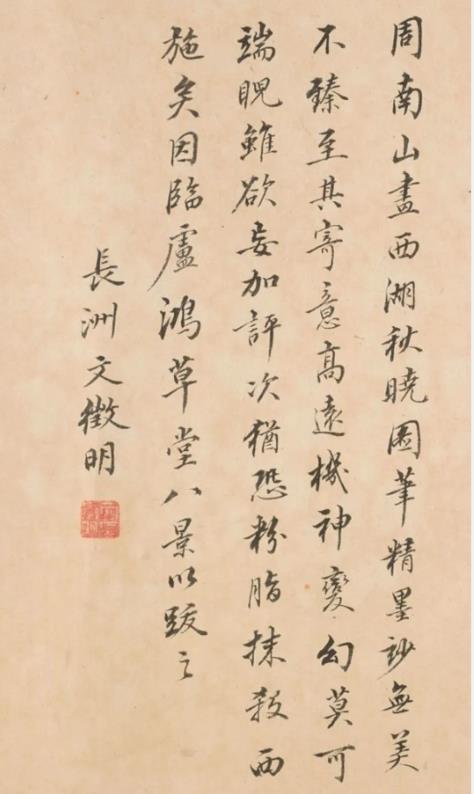 周南山畫西湖秋曉圖筆精墨玅無美
不臻至其寄意高遠機神變幻莫可
端睨雖欲妄加評次猶恐粉脂抹殺西
施矣因臨盧鴻草堂八景以跋之
長洲文徵明